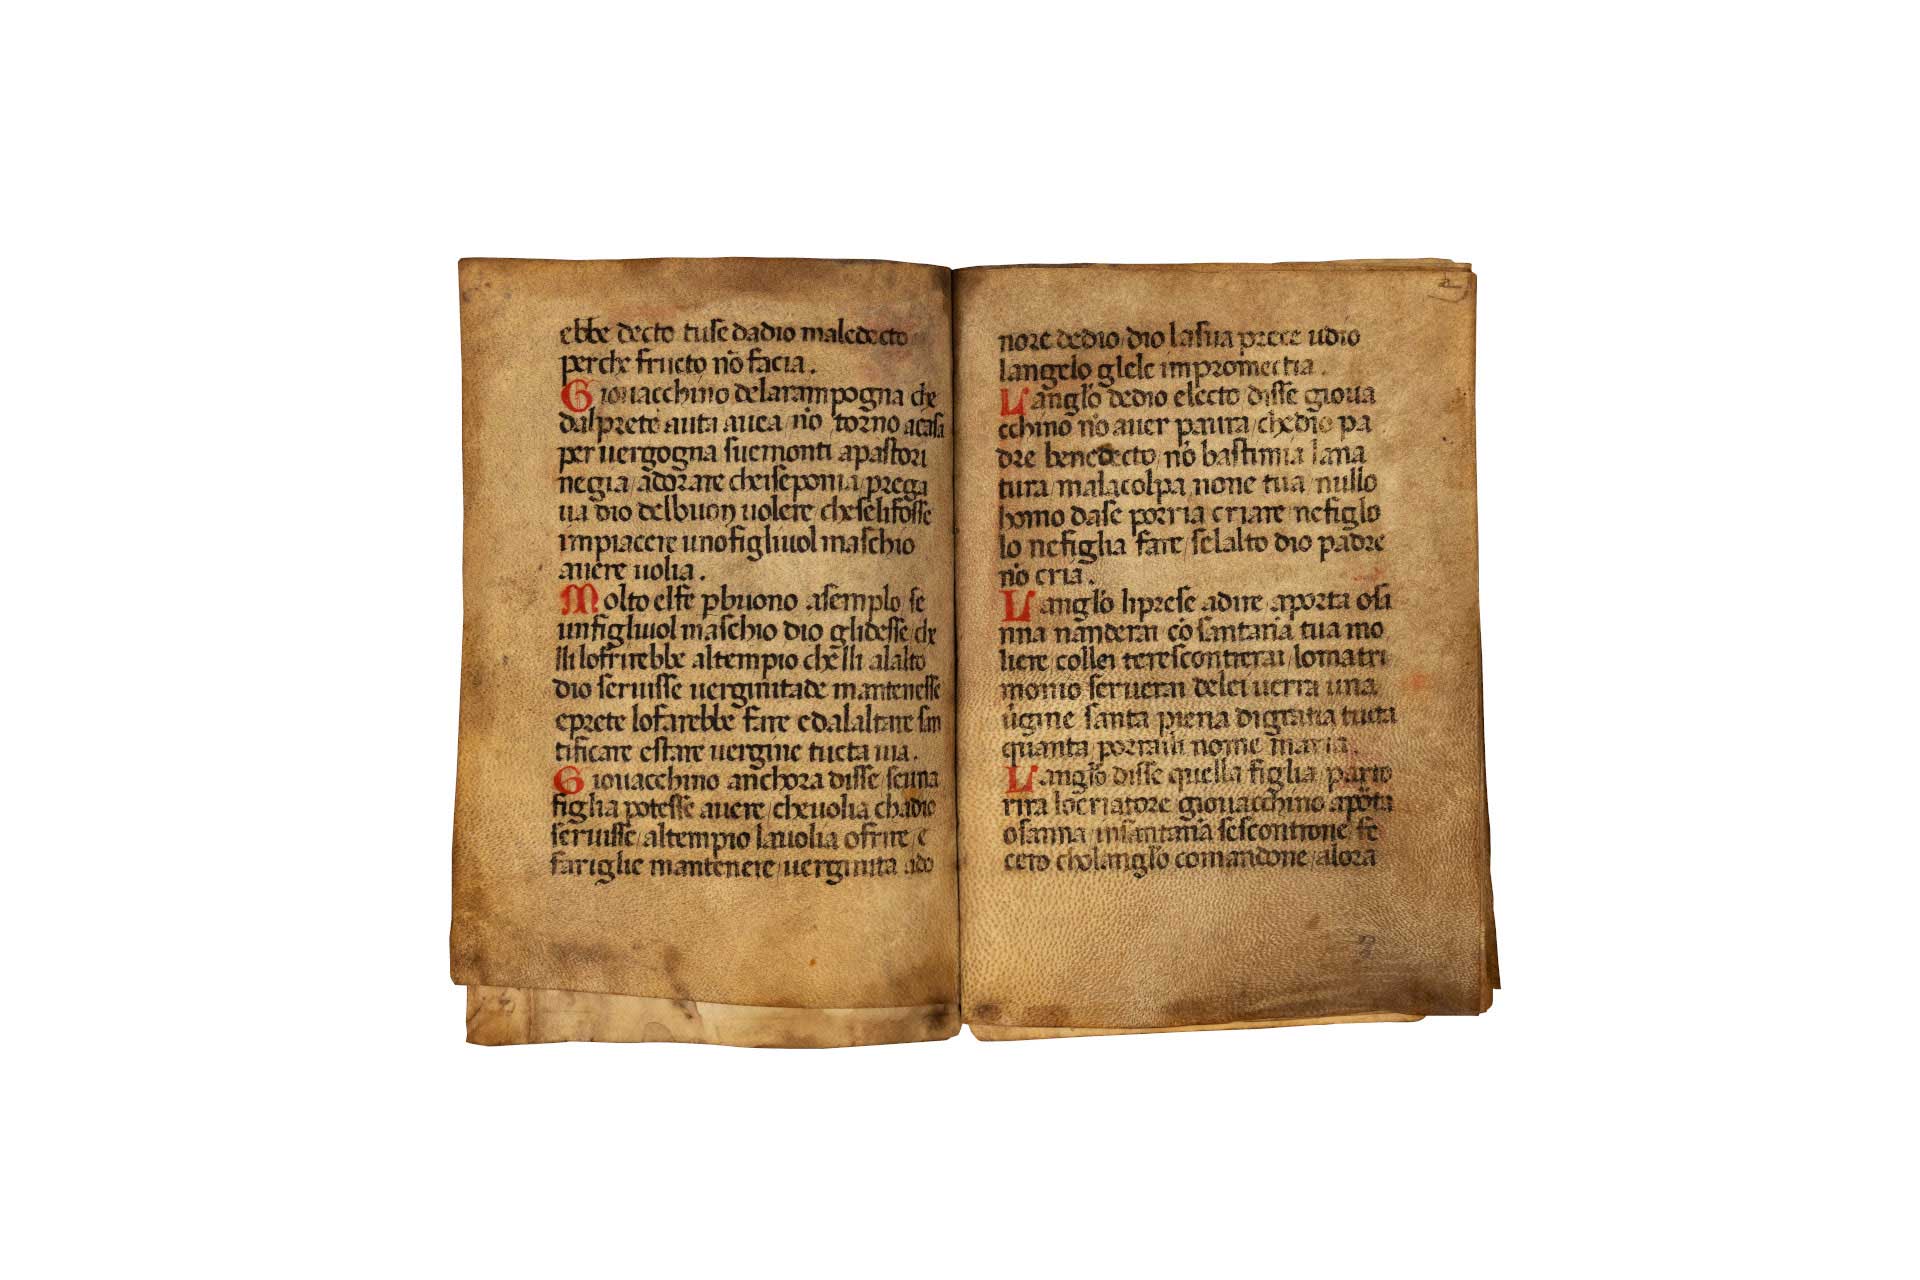 ebbe decto tuse dadio maledecto
perche fructo nō facia.
Giouacchino delarampogna che
dalprete auta auea/nō torno acasa
per uergogna suemonti apastori
negia/adorare cheiseponia/prega
ua dio delbuon uolere/cheselifosse
impiacere unofigliuol maschio
auere uolia.
Molto elfe pbuono asemplo/se
unfigliuol maschio dio glidesse/che
lli lofrirebbe altempio chēlli alalto
dio seruisse uerginitade mantenesse
eprete lofarebbe fare edalaltare san
tificare estare uergine tucta uia.
Giouacchino anchora disse seuna
figlia potesse auere/cheuolia chadio
seruisse/altempio lauolia ofrire/e
fariglie mantenere/uerginita ado
nore dedio/dio lasua prece udio
langelo glele impromectia.
Langl̄o dedio electo disse gioua
cchino nō auer paura/chedio pa
dre benedecto/nō bastimia lana
tura/malacolpa none tua/nullo
homo dase porria criare nefiglo
lo nefiglia fare/selalto dio padre
nō cria.
Langl̄o liprese adire/aporta osa
nna nanderai cō santaria tua mo
liere collei terescontrerai/lomatri
monio seruerai delei uerra una
ūgine santa piena digratia tucta
quanta/porraili nome maria.
Langl̄o disse quella figlia/parto
rira locriatore giouacchino aporta
osanna/insantaria sescontrone/fe
cero cholangl̄o comandone/alora